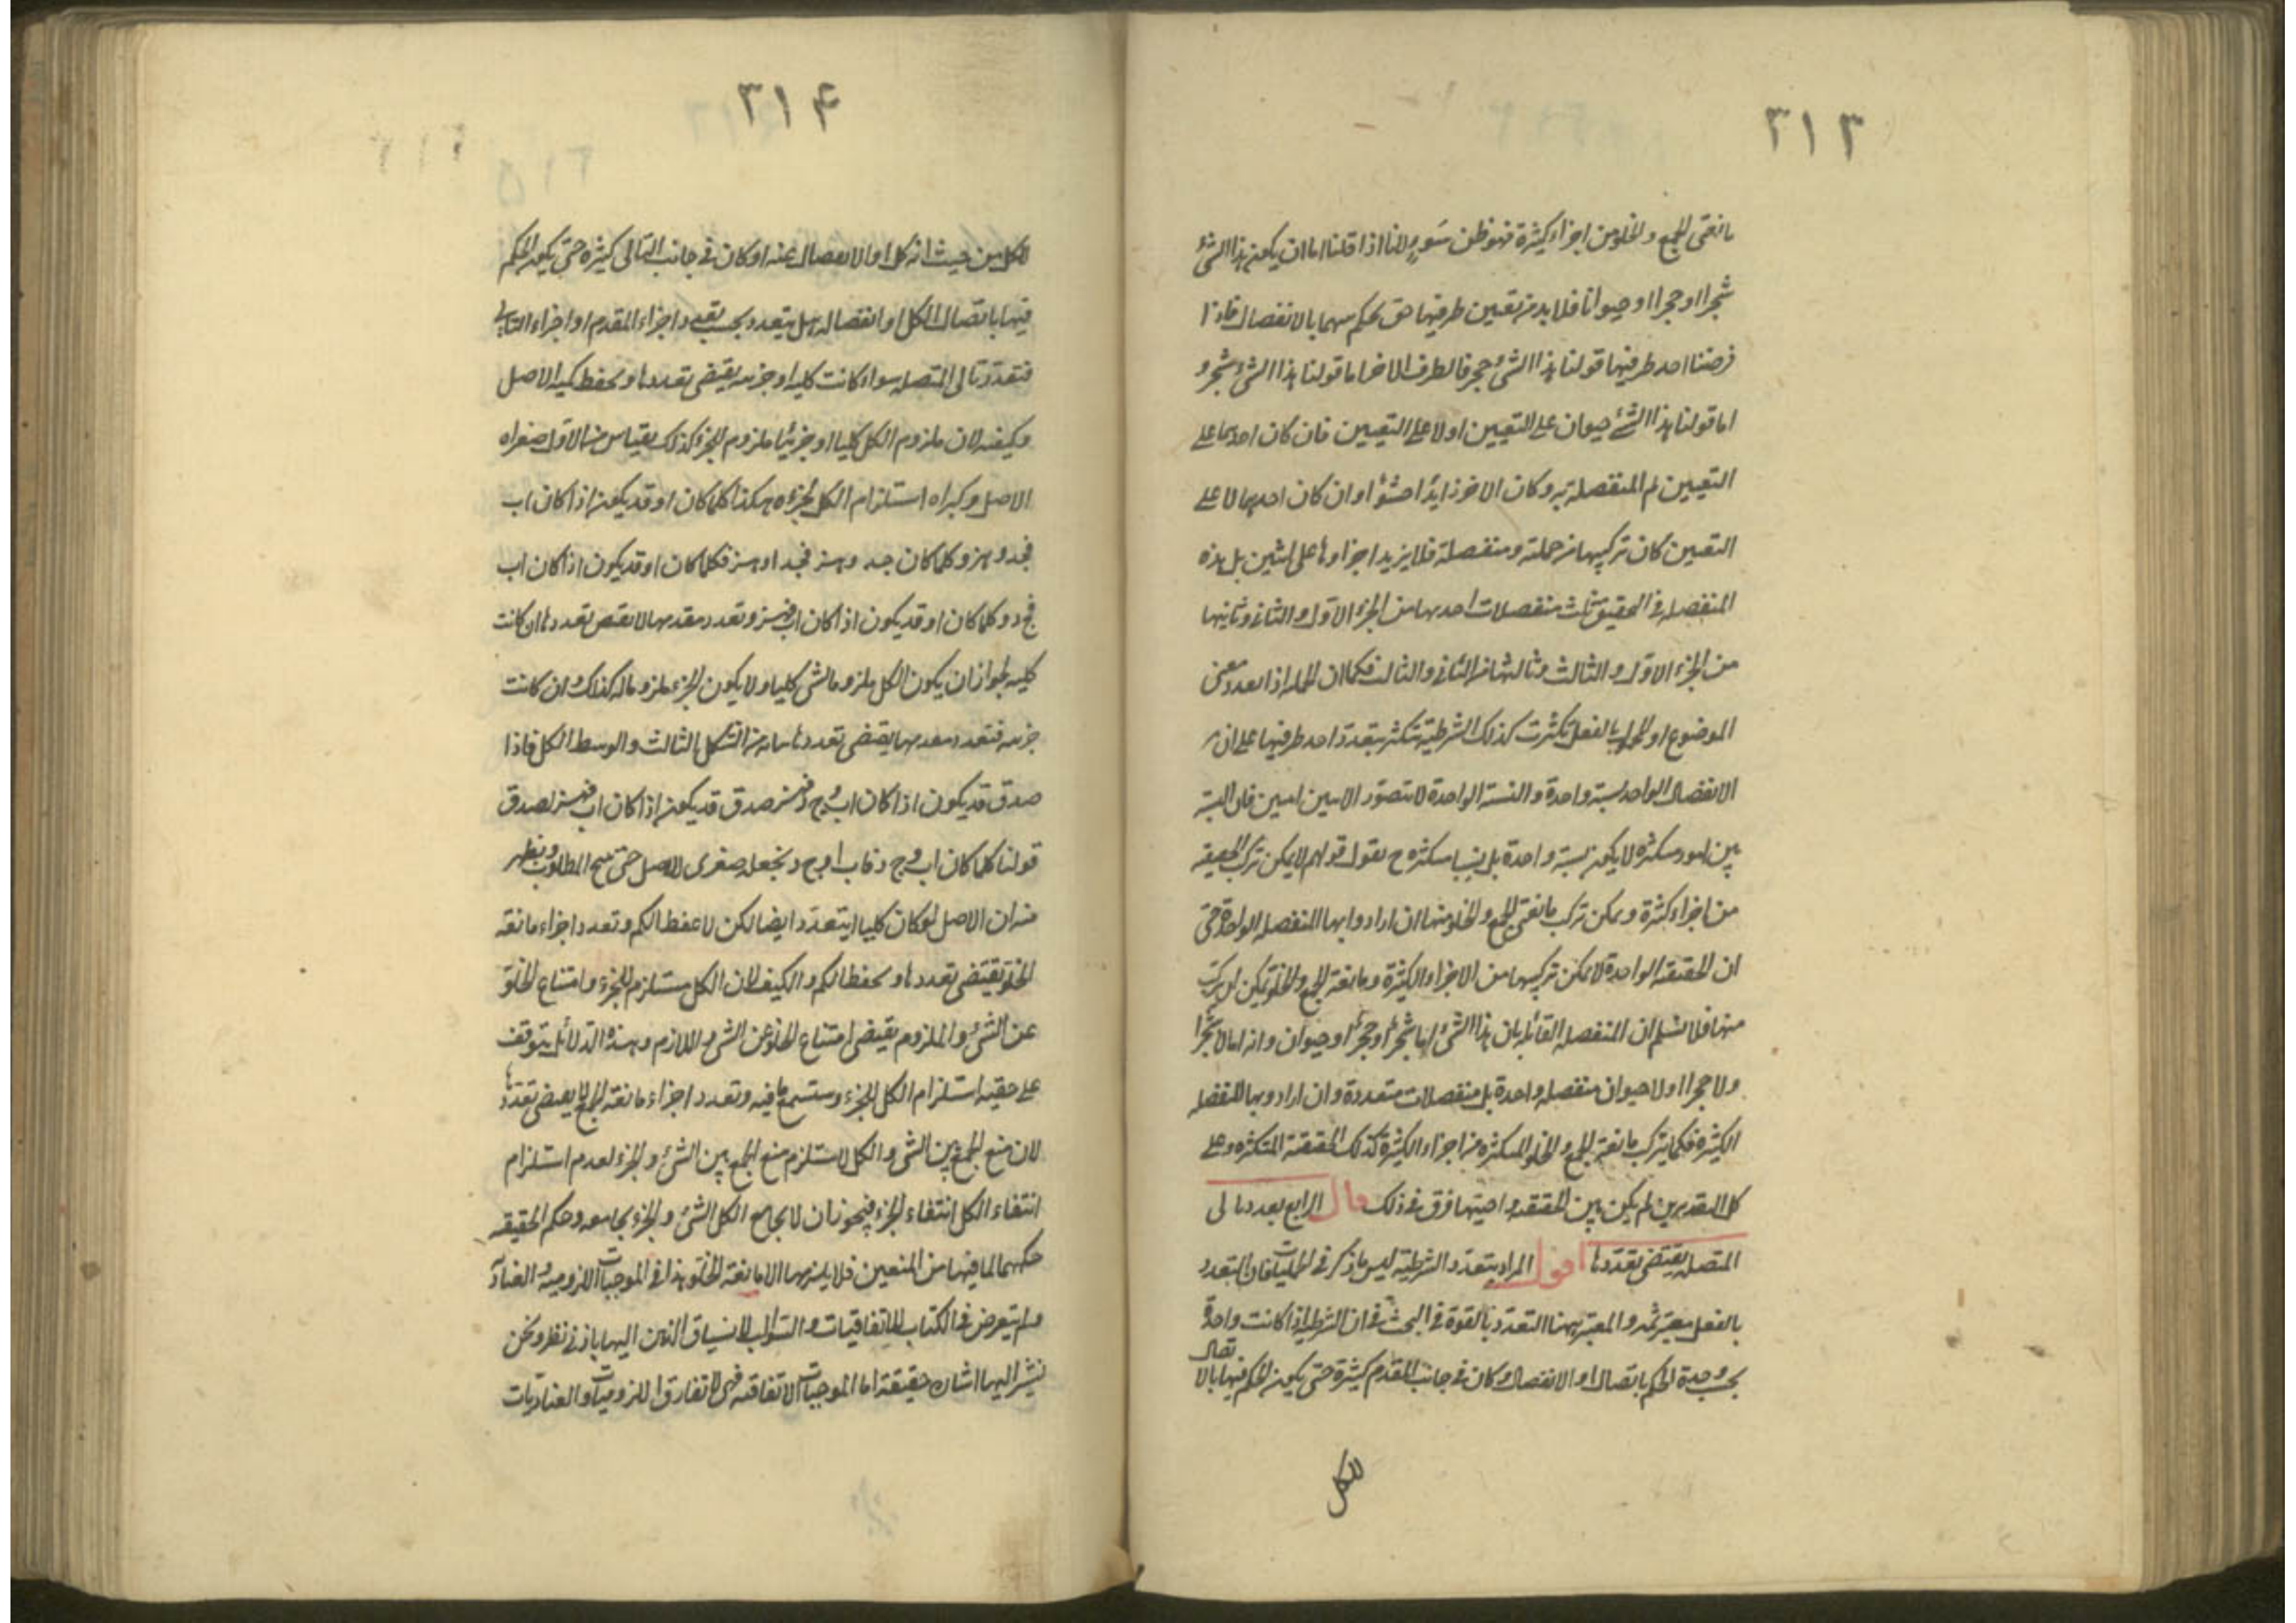 ٣١٣
مانعتى الجمع والخلو من اجزاء كثيرة فهو ظن سوء لانا اذا قلنا اما ان يكون هذا الشئ
شجرا او حجرا او حيوانا فلا بد من تعيين طرفيها حتى يحكم بينهما بالانفصال فاذا
فرضنا احد طرفيها قولنا هذا الشئ حجر فالطرف الاخر اما قولنا هذا الشئ شجر و
اما قولنا هذا الشئ حيوان على التعيين او لا على التعيين فان كان احدهما على
التعيين تم المنفصلة به وكان الاخر زايدا حشوا وان كان احدهما لا على
التعيين كان تركيبها من حملية ومنفصلة فلا يزيد اجزاوها على اثنين بل هذه
المنفصلة فى التحقيق ثلث منفصلات احدها من الجزء الاول والثانى وثانيها
من الجزء الاول والثالث وثالثها من الثانى والثالث فكما ان الحملية اذا تعدد معنى
الموضوع او المحمول بالفعل تكثرت كذلك الشرطية تتكثر بتعدد احد طرفيها على ان
الانفصال الواحد نسبة واحدة والنسبة الواحدة لا تتصور الا بين اثنين فان النسبة
بين امور متكثرة لا يكون نسبة واحدة بل نسبا متكثرة ح نقول قولهم لا يمكن تركب الحقيقية
من اجزاء كثيرة ويمكن تركب مانعتى الجمع والخلو منها ان ارادوا بها المنفصلة الواحدة حتى
ان الحقيقية الواحدة لا يمكن تركيبها من الاجزاء الكثيرة ومانعة الجمع والخلو يمكن ان يركب
منها فلا نسلم ان المنفصلة القائلة بان هذا الشئ اما شجر او حجر او حيوان وانه اما لا شجرا
ولا حجرا او لا حيوان منفصلة واحدة بل منفصلات متعددة وان ارادوا بها المنفصلة
الكثيرة فكما يتركب مانعة الجمع والخلو المتكثرة من اجزاء الكثيرة كذلك الحقيقة المتكثرة وعلى
كل التقديرين لم يكن بين الحقيقية واختيها فرق فى ذلك قال الرابع تعدد تالى
المتصلة يقتضى تعددها اقول المراد بتعدد الشرطية ليس ما ذكر فى الحمليات فان التعدد
بالفعل معتبر ثمه والمعتبر ههنا التعدد بالقوة فى البحث فى ان الشرطية اذا كانت واحدة
بحسب وحدة الحكم باتصال او الانفصال وكان فى جانب المقدم كثيرة حتى يكون الحكم فيها بالا
تصال
للكل
٣١۴
للكل من حيث انه كل او الانفصال عنه او كان فى جانب التالى كثيرة حتى يكون الحكم
فيها باتصال الكل او انفصاله هل يتعدد بحسب تعدد اجزاء المقدم او اجزاء التالى
فتعدد تالى المتصلة سواء كانت كلية او جزئية يقتضى تعددها ويحفظ كمية الاصل
وكيفه لان ملزوم الكل كليا او جزئيا ملزوم الجزء كذلك بقياس من الاول صغراه
الاصل وكبراه استلزام الكل لجزءه هكذا كلما كان او قد يكون اذا كان اب
فجد وهز وكلما كان جد وهز فجد او هز فكلما كان او قد يكون اذا كان اب
فج د وكلما كان او قد يكون اذا كان اب فهز وتعدد مقدمها لا يقتضى تعددها ان كانت
كلية لجواز ان يكون الكل ملزوما لشئ كليا ولا يكون الجزء ملزوما له كذلك وان كانت
جزئية فتعدد مقدمها يقتضى تعددها بيانه من الشكل الثالث والوسط الكل فاذا
صدق قد يكون اذا كان اب وج د فهز صدق قد يكون اذا كان اب فهز لصدق
قولنا كلما كان اب وج د فاب او ج د ونجعله صغرى للاصل حتى ينتج المطلوب ويظهر
منه ان الاصل لو كان كليا يتعدد ايضا لكن لا يحفظ الكم وتعدد اجزاء مانعة
الخلو يقتضى تعددها ويحفظ الكم والكيف لان الكل مستلزم للجزء وامتناع الخلو
عن الشئ والملزوم يقتضى امتناع الخلو عن الشئ واللازم وهذه الدلائل يتوقف
على حقية استلزام الكل للجزء وستسمع ما فيه وتعدد اجزاء مانعة الجمع لا يقتضى تعددها
لان منع الجمع بين الشئ والكل لا يستلزم منع الجمع بين الشئ والجزء لعدم استلزام
انتفاء الكل انتفاء الجزء فيجوز ان لا يجامع الكل الشئ والجزء يجامعه وحكم الحقيقية
حكمهما لما فيها من المنعين فلا يلزمها الا مانعة الخلو هذا فى الموجبات اللزومية والعنادية
ولم يتعرض فى الكتاب للاتفاقيات والسوالب لانسياق الذهن اليها بادنى نظر ونحن
نشير اليها اشارة حقيقة اما الموجبات الاتفاقية فهى لا تفارق اللزوميات والعناديات